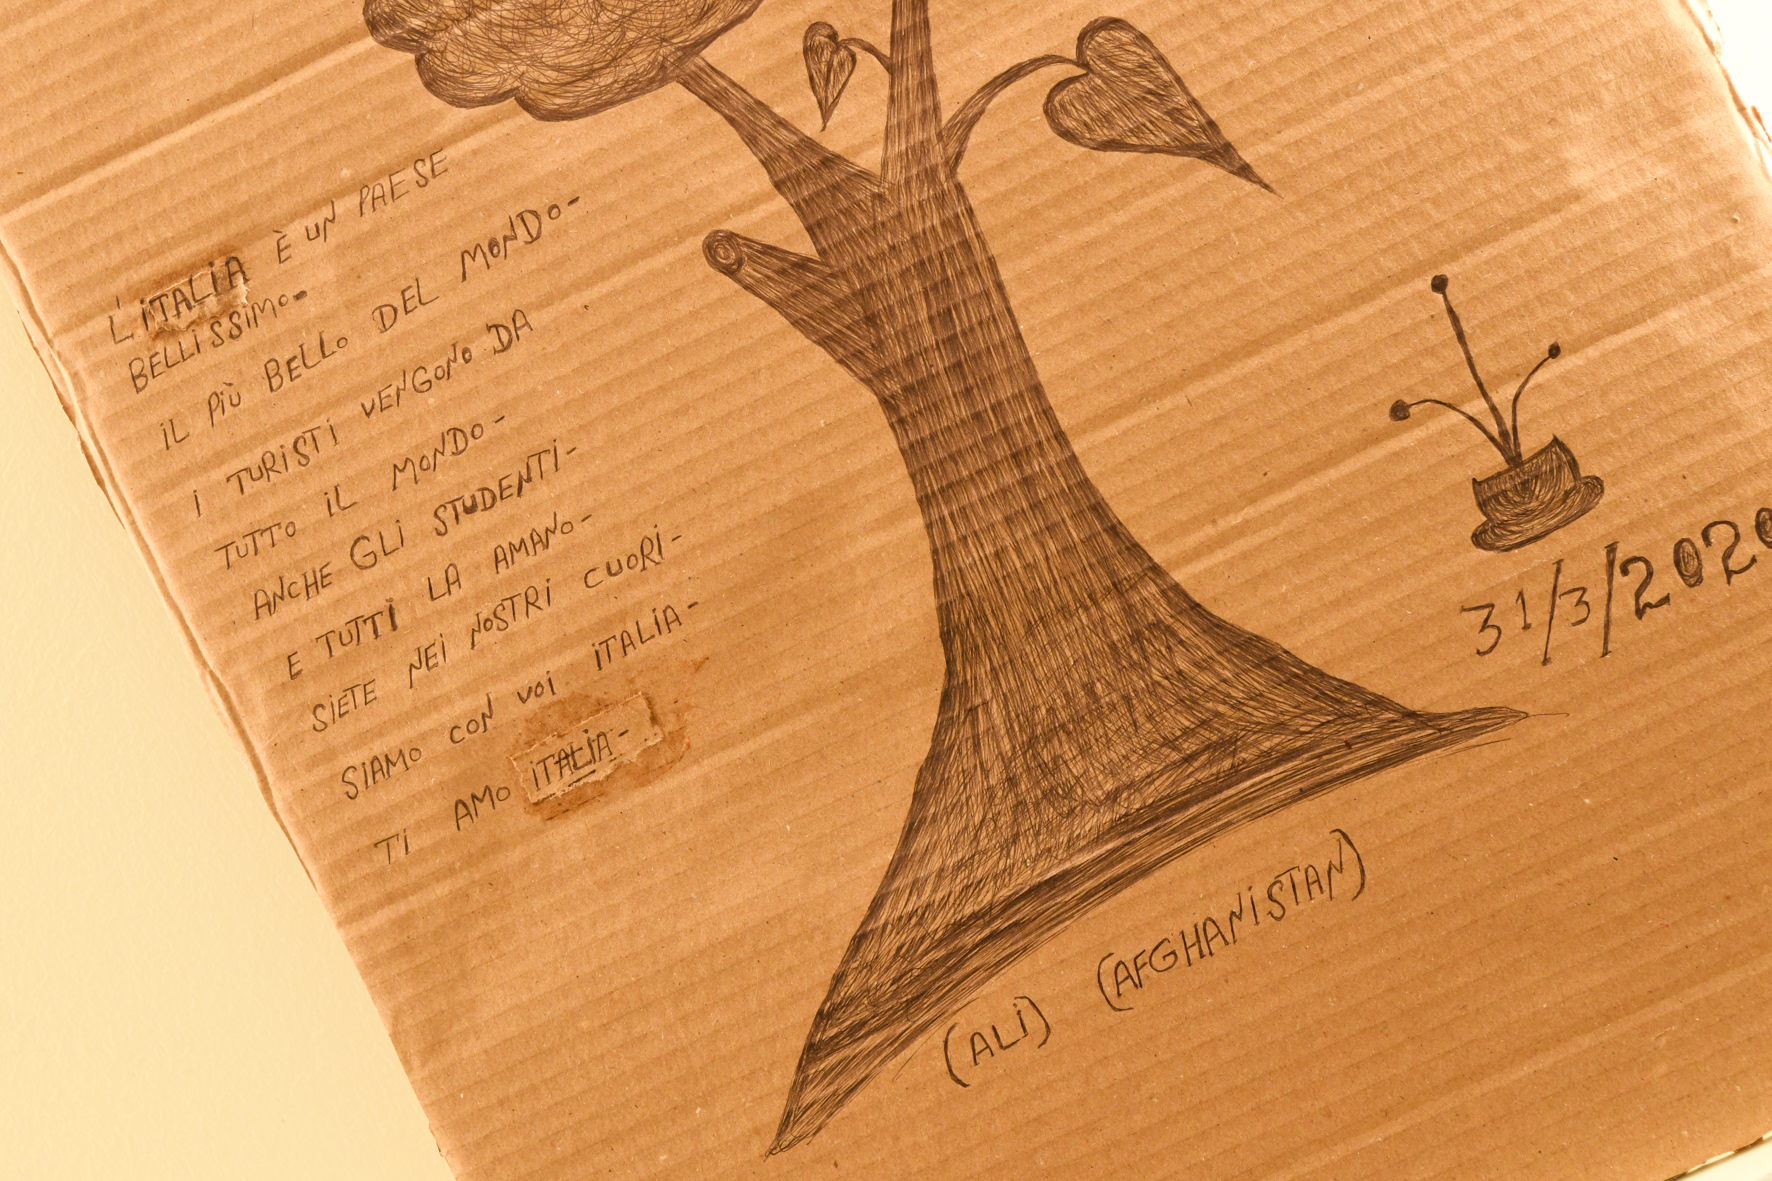 L'ITALIA È UN PAESE
BELLISSIMO-
IL PIÙ BELLO DEL MONDO-
I TURISTI VENGONO DA
TUTTO IL MONDO-
ANCHE GLI STUDENTI-
E TUTTI LA AMANO-
SIETE NEI NOSTRI CUORI-
SIAMO CON VOI ITALIA-
TI AMO ITALIA-
31/3/2020
(ALI) (AFGHANISTAN)